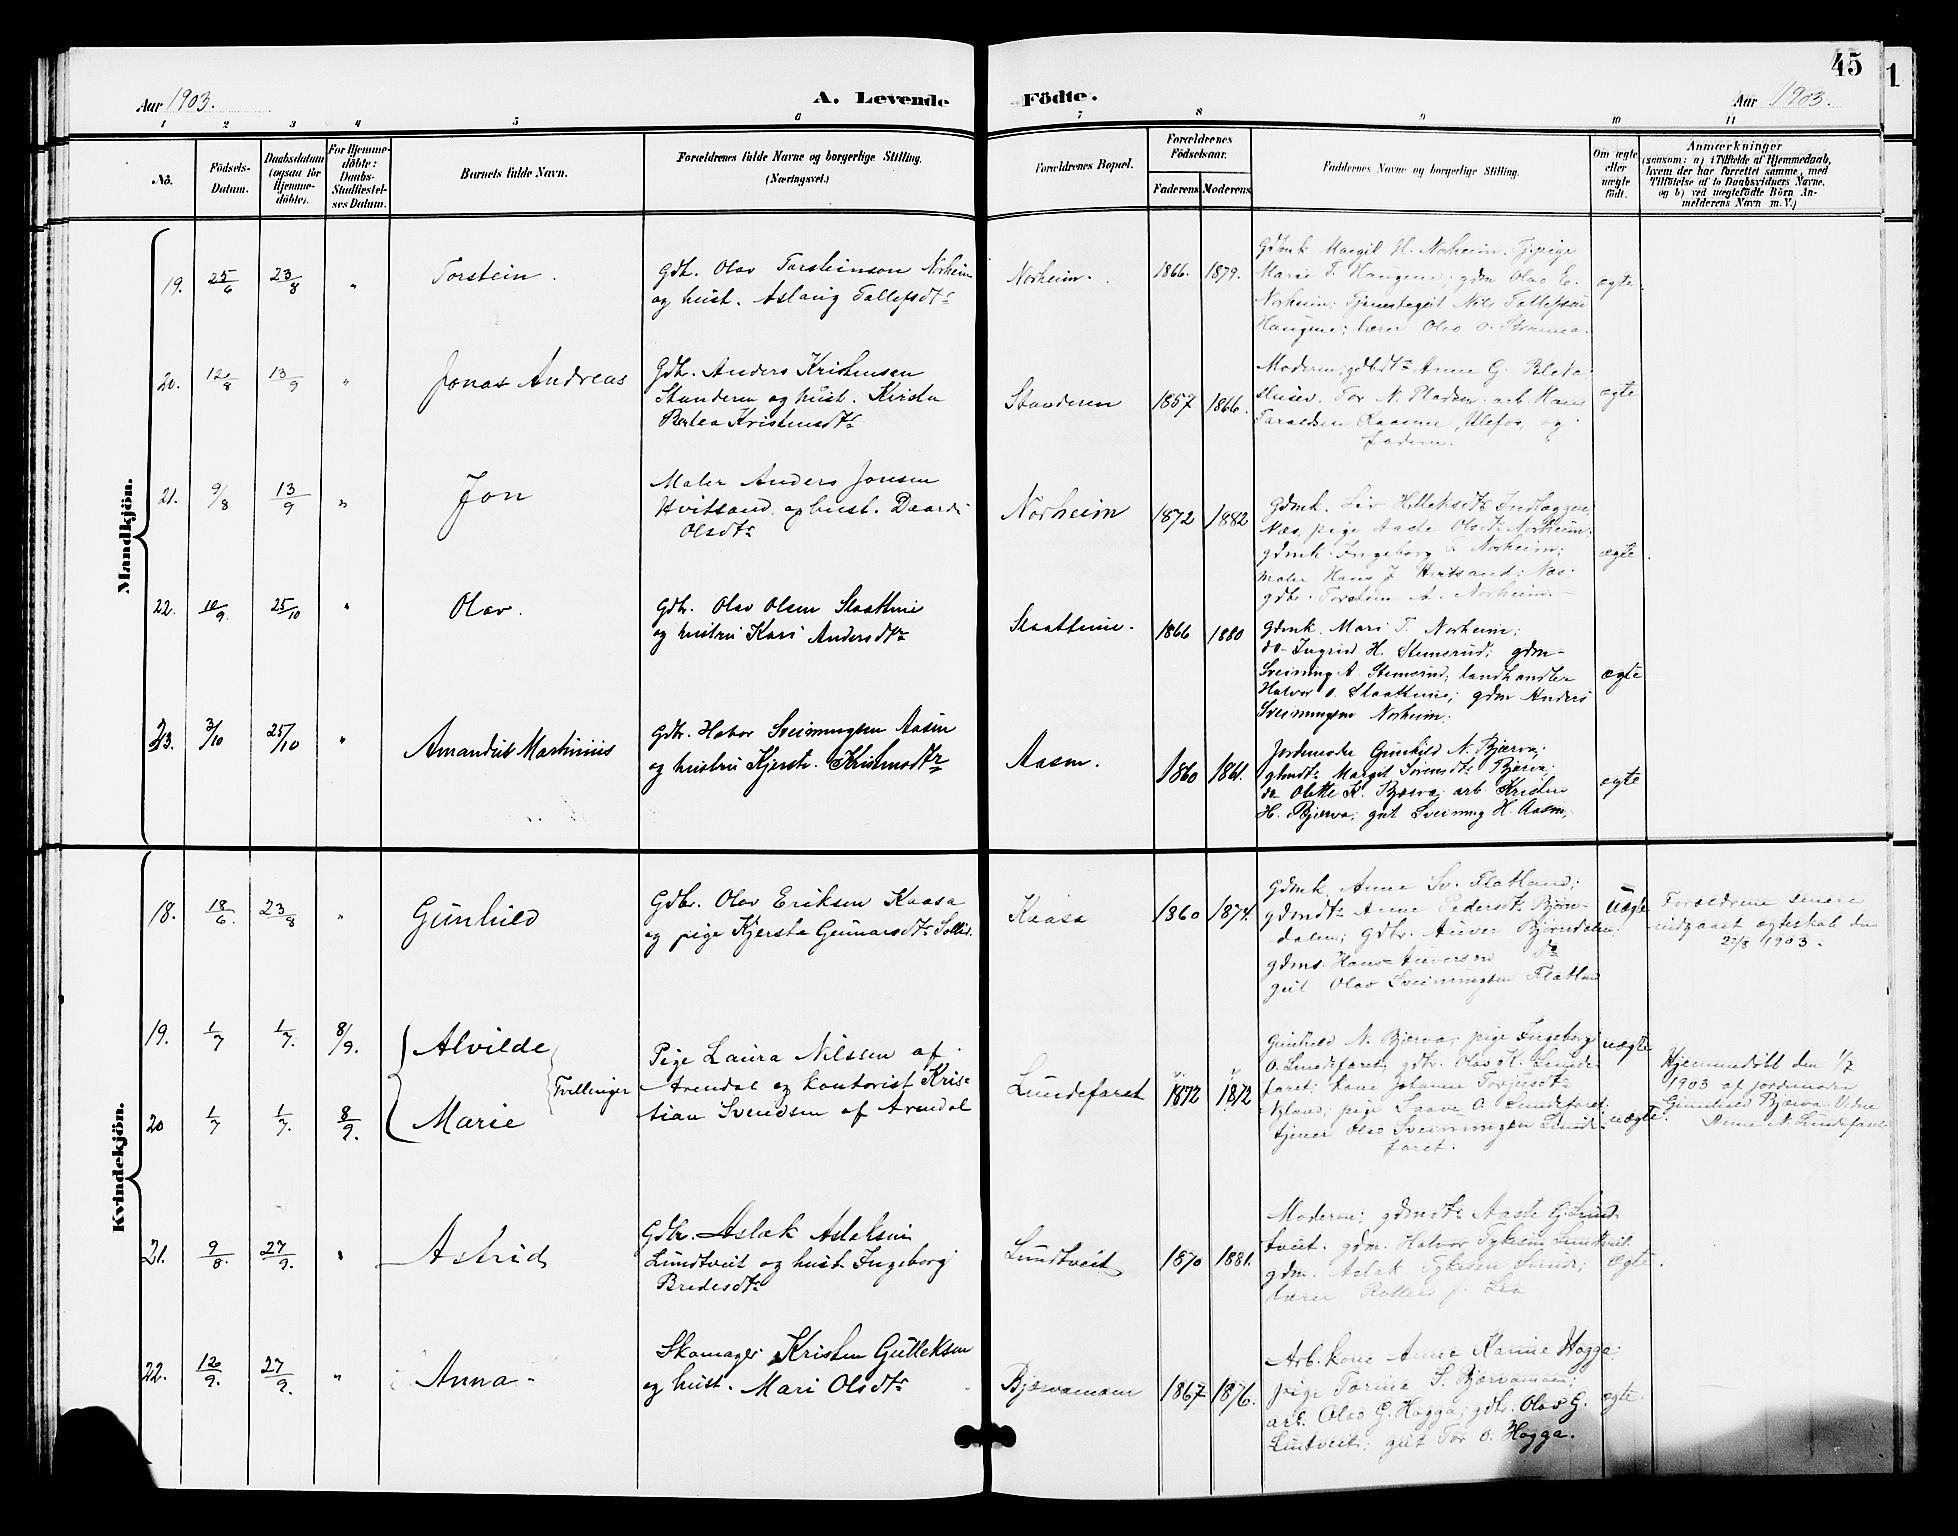 45
Aar 1903.
A. Levende
Födte.
Aar 1903.
1 2 3 4 5 6 7 8 9 10 11
No.
Födsels-
Datum.
Daabsdatum
(ogsaa for
Hjemme-
döbte).
For Hjemme-
döbte:
Daabs-
Stadfæstel-
ses Datum.
Barnets fulde Navn.
Forældrenes fulde Navne og borgerlige Stilling.
(Næringsvei.)
Forældrenes Bopæl.
Forældrenes
Födselsaar.
Faderens
Moderens
Faddernes Navne og borgerlige Stilling.
Om ægte
eller
uægte
födt.
Anmærkninger
(saasom: a) i Tilfælde af Hjemmedaab,
hvem der har forrettet samme, med
Tilföielse af to Daabsvidners Navne,
og b) ved uegtefödte Börn An-
melderens Navn m. V.)
Mandkjön.
19. 25/6 23/8 "
Torstein.
Gdb. Olav Torsteinson Norheim
og hust. Aslaug Tallefsdtr
Norheim.
1866. 1879.
Gdmk Margit H. Norheim. Tj.pige
Marie T. Haugene; gdm Olav E.
Norheim; Tjenestegut Nils Tallefsen
Haugene; lærer Olav O. Stranna.
ægte.
20. 12/8 13/9 "
Jonas Andreas
Gdb. Anders Kristensen
Standeren og hust. Kirsten
Bertea Kristensdtr
Standeren
1857 1866.
Moderen; gdbdtr Anne G. Bleka
Tor N. arb. Hans
Taraldsen Kaasene, Ulefos, og
faderen.
ægte
21. 9/8 13/9 "
Jon
Maler Anders Jonsen
Hvitsand og hust. Daardi
Olsdtr
Norheim
1872 1882
gdmk. Liv Helleksdtr
Næs, pige Aade Olsdtr Norheim;
gdmk Ingeborg T. Norheim;
maler Hans J Hvitsand; Næs;
gdbr. Torstein A. Norheim.
ægte.
22. 10/9 25/10 "
Olav.
Gdb. Olav Olsen Slaattene
og hustru Kari Andersdtr
Slaattene.
1866 1880
Gdmk. Mari T. Norheim;
do- Ingrid H. Stensrud; gdm-
Sveinung A. Stensrud; landhandler
Halvor O. Slaattene; gdm Anders
Sveinungsen Norheim.
ægte
23. 3/10 25/10 "
Amandus Martinius
Gdb. Halvor Sveinungsen Aasen
og hustru Kjerste Kristensdtr
Aasen.
1860 1861.
Jordemoder Gunhild N. Bjærva;
gbmdtr Margit Sørensdtr Bjærva;
do Olette K. Bjærva; arb. Kristen
H. Bjærva; gut Sveinung H. Aasen.
ægte
Kvindekjön.
18. 18/6. 23/8 "
Gunhild
Gdbr. Olav Eriksen Kaasa
og pige Kjerste Gunnarsdtr Sollid.
Kaasa
1860 1874.
Gdmk. Anne Sv. Flatland;
gdmdtr Anne Pedersdtr Bjørn-
dalen; Gdbr. Anver Bjørndalen;
gdms. Hans Anversen do
gut Olav Sveinungsen Flatland
Uægte
Forældrene senere
indgaaet ægteskab den
23/8 1903.
19. 1/7 1/7. 8/9.
Alvilde
20 1/7 1/7. 8/9.
Marie
Tvillinger
Pige Laura Nilssen af
Arendal og kontorist Kris-
tian Svendsen af Arendal
Lundefaret
1872 1872
Gunhild N. Bjærva; pige Ingeborg
O. Lundefaret; gdbr. Olav K. Lunde-
faret; kone Johanne Torjusdtr
pige Saave O. Lundefaret;
tjener Olav Sveinungsen Lunde-
faret.
uægte
uægte.
Hjemmedöbt den 1/7
1903 af jordemoder
Gunhild Bjærva. Vidne
Anne N. Lundefaret
21. 9/8. 27/9. "
Astrid
Gdbr. Aslak Aslaksen
Lundtveit og hust Ingeborg
Bredesdtr
Lundtveit
1870 1881.
Moderen; gdmdtr Aaste G. Lund-
tveit. gdm. Halvor Tykesen Lundtveit.
gdm. Aslak Tykesen
lærer
ægte.
22. 12/9. 27/9. "
Anna
Skomager Kristen Gulleksen
og hust. Mari Olsdtr
Bjærvamoen
1867 1876.
Arb. kone Anne Karine Hogga;
pige Torine S. Bjærvamoen;
arb. Olav G. Hogga; gdbr. Olav G.
Lundtveit; gut Tor O. Hogga.
ægte.